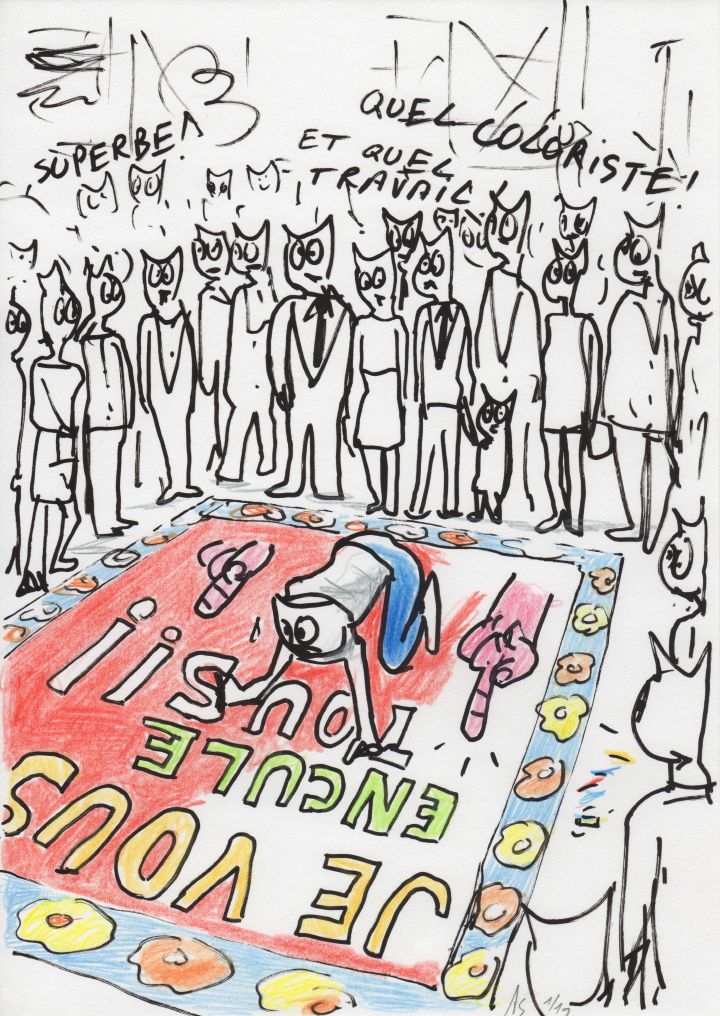 SUPERBE!
QUEL COLORISTE!
ET QUEL
TRAVAIL
JE VOUS
ENCULE
TOUS!!